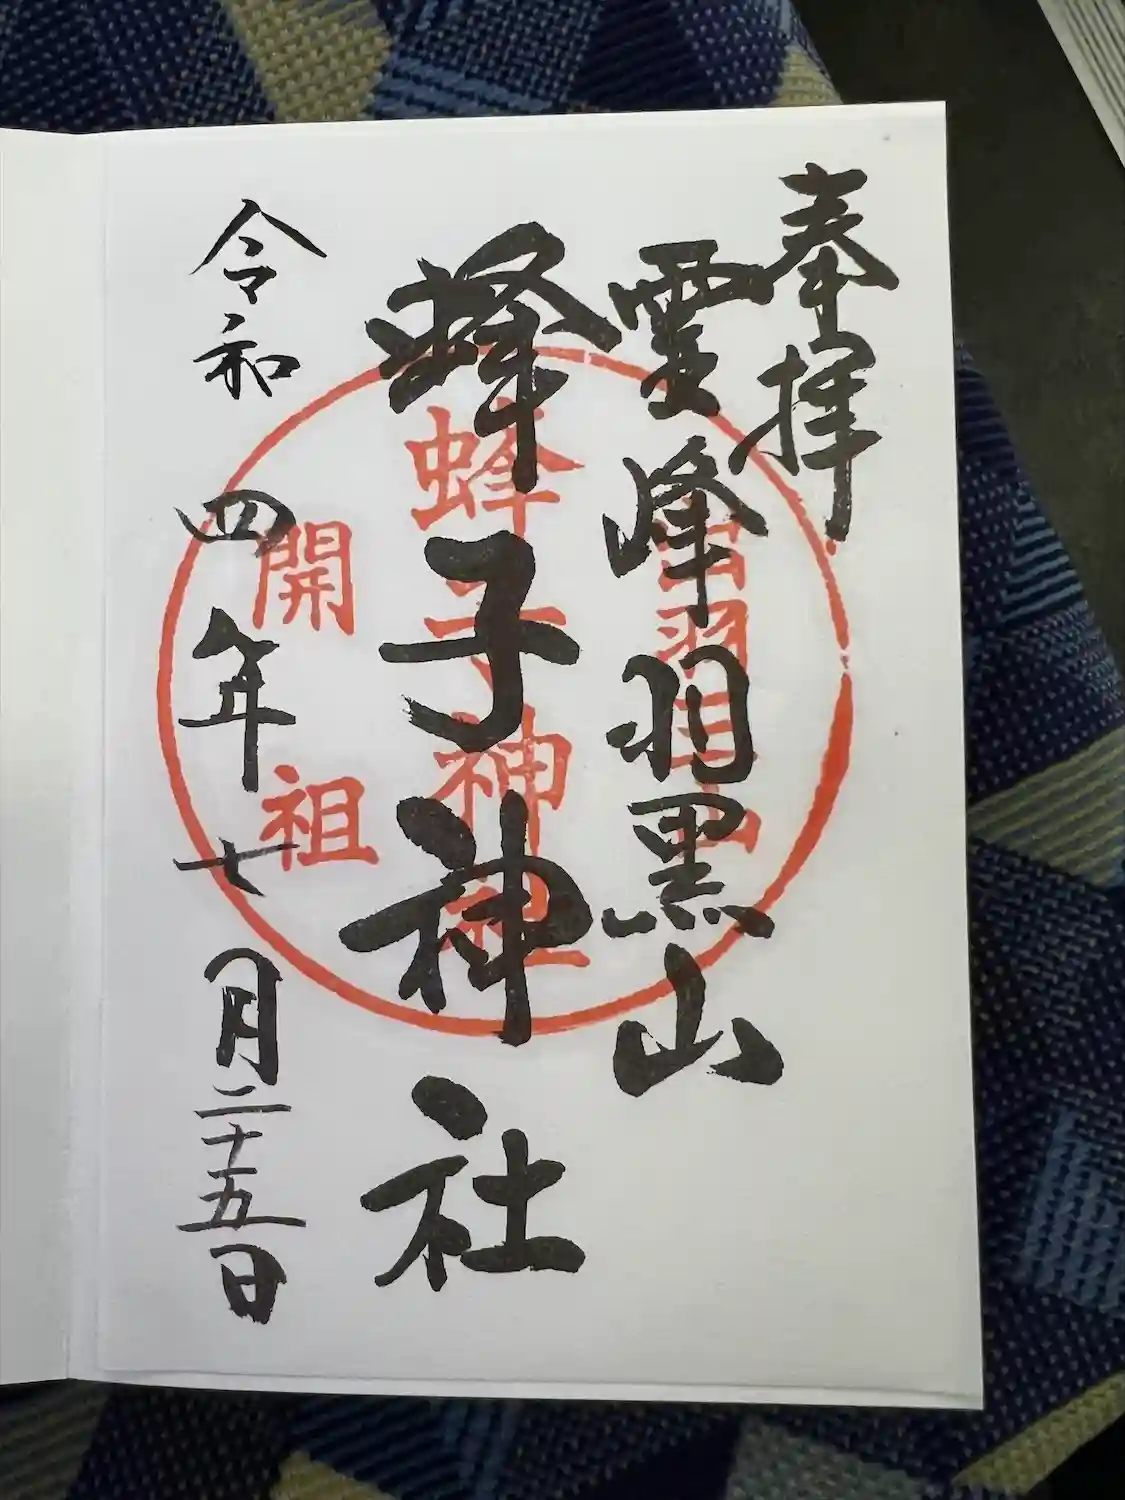 奉拝
霊峰羽黒山
蜂子神社
令和四年七月二十五日
出羽三山
蜂子神社
開祖